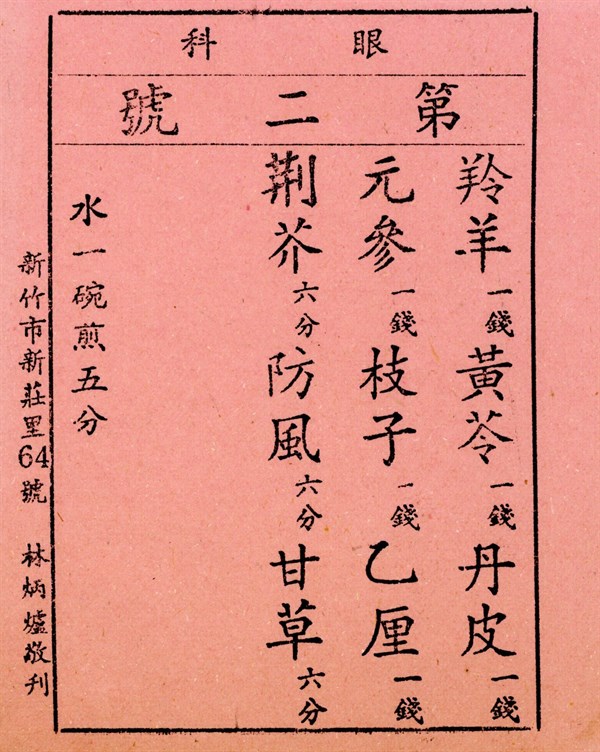 眼科
第二號
羚羊一錢 黃苓一錢 丹皮一錢
元參一錢 枝子一錢 乙厘一錢
荆芥六分 防風六分 甘草六分
水一碗煎五分
新竹市新莊里64號 林炳爐敬刊